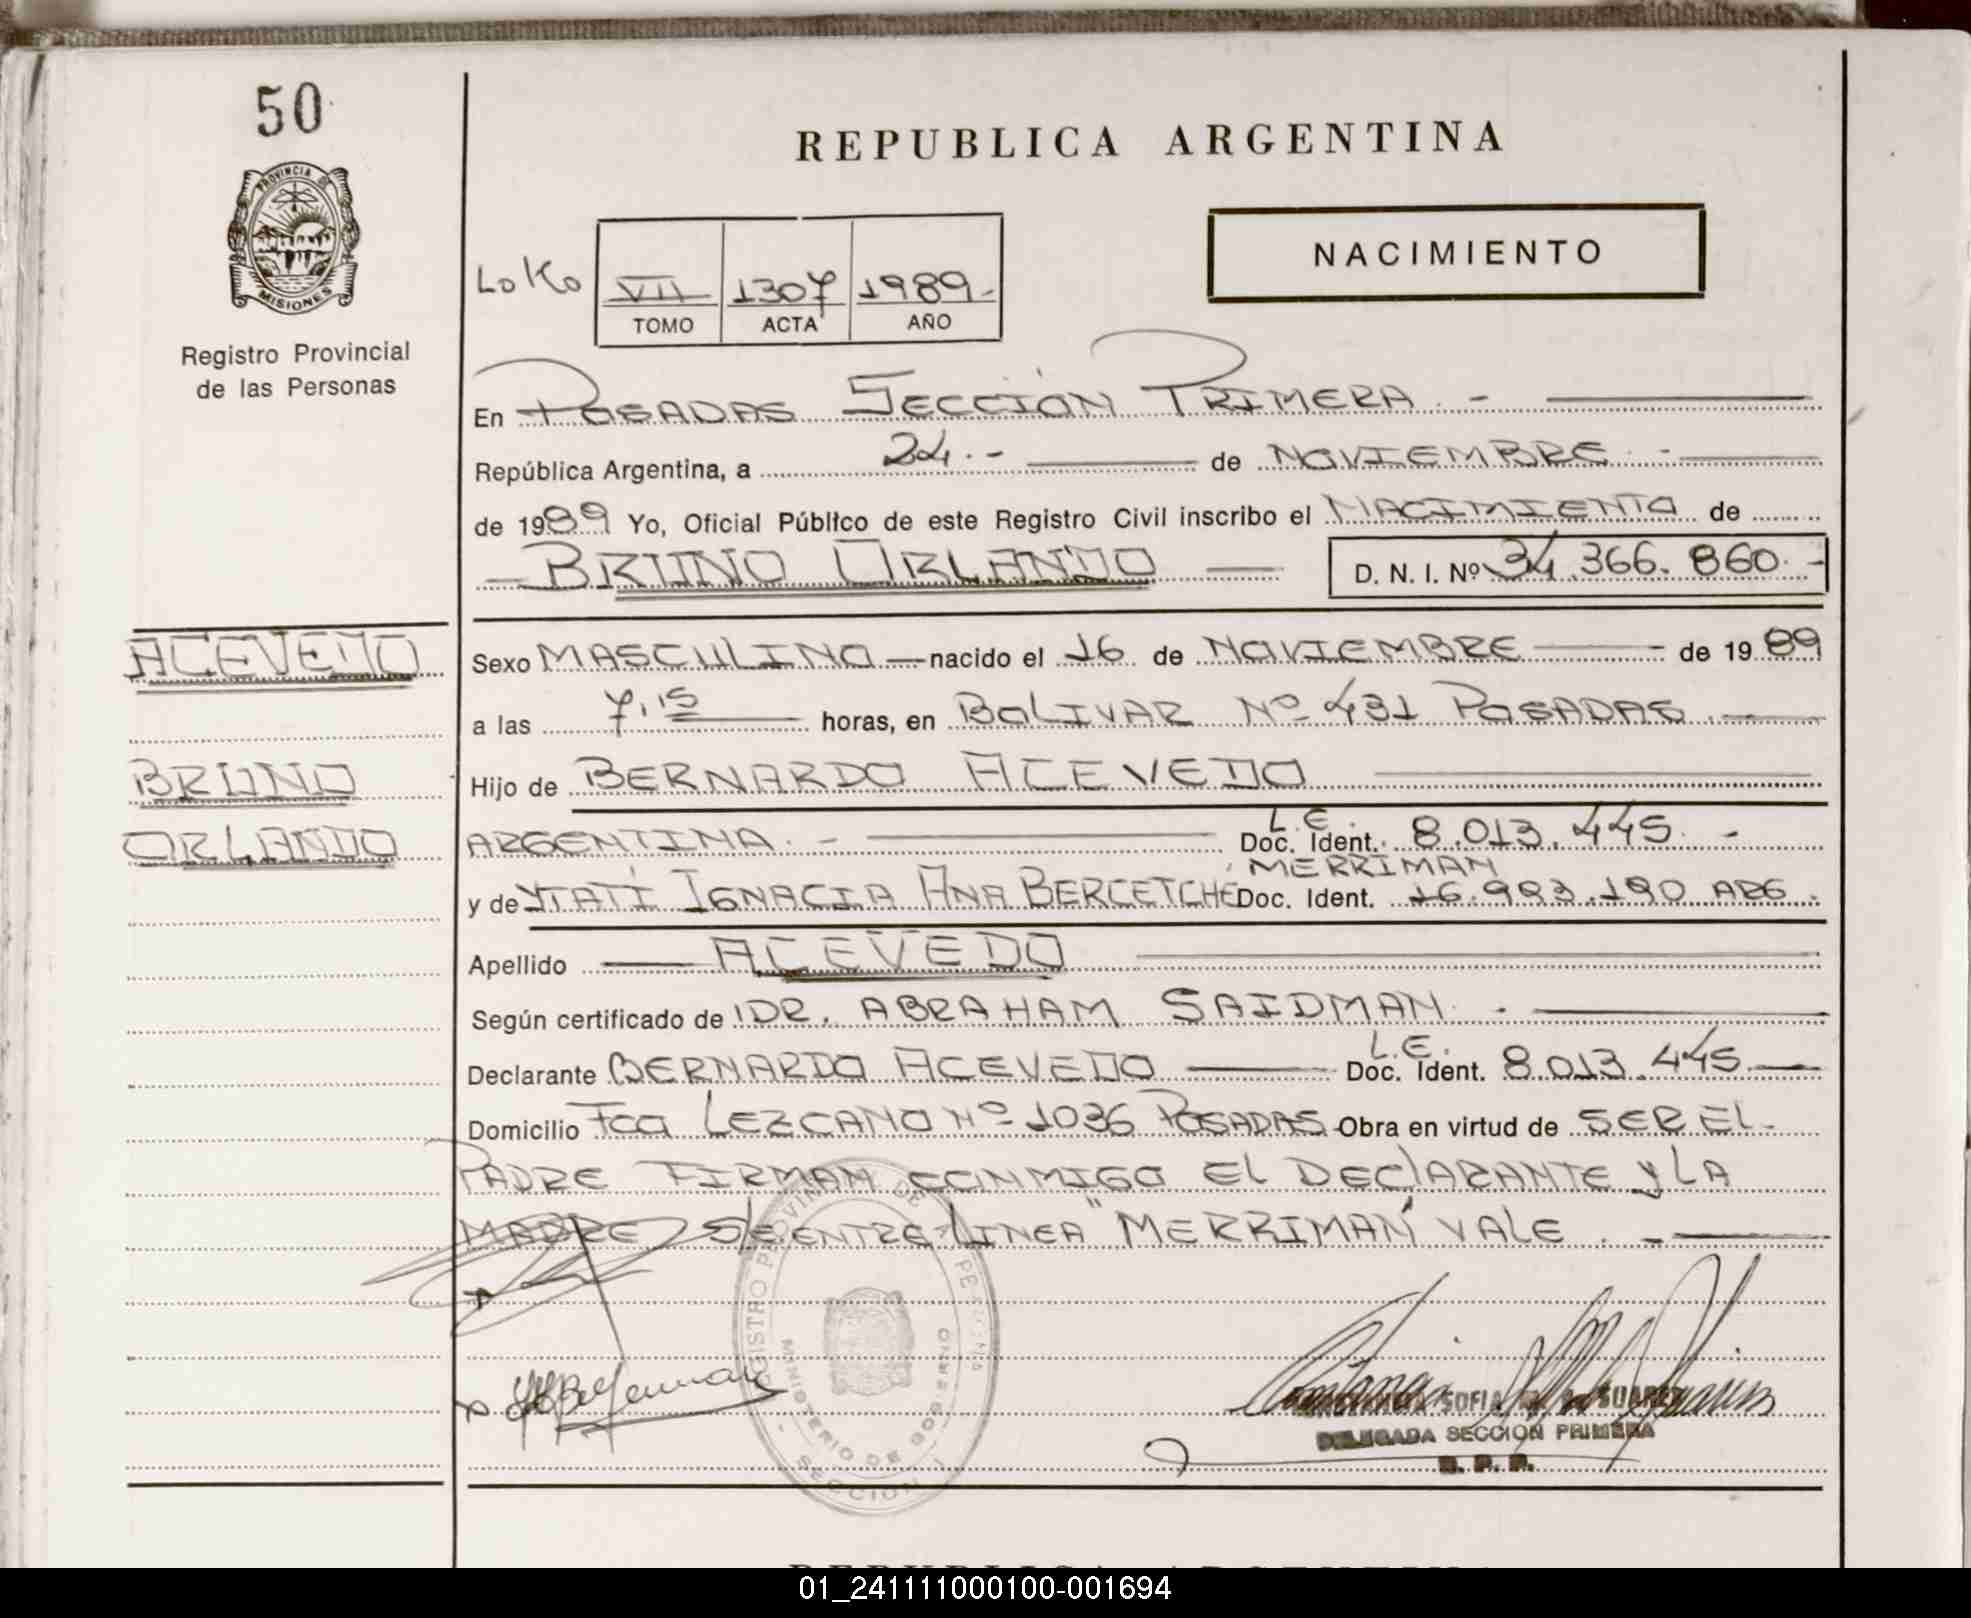 50
REPUBLICA ARGENTINA
PROVINCIA DE
MISIONES
Registro Provincial
de las Personas
NACIMIENTO
LoKo
VII 1307 1989-
TOMO ACTA AÑO
En POSADAS SECCIÓN PRIMERA.-
República Argentina, a 24.- de NOVIEMBRE.-
de 1989 Yo, Oficial Público de este Registro Civil inscribo el NACIMIENTO de
BRUNO ORLANDO D. N. I. Nº 34.366.860.-
ACEVEDO
BRUNO
ORLANDO
Sexo MASCULINO nacido el 16 de NOVIEMBRE de 1989
a las 7,15 horas, en BOLIVAR Nº 431 POSADAS.-
Hijo de BERNARDO ACEVEDO
ARGENTINA.- L.E. Doc. Ident. 8.013.445.-
MERRIMAN
y de YTATÍ IGNACIA ANA BERCETCHE Doc. Ident. 16.993.190 ARG.
Apellido ACEVEDO
Según certificado de DR. ABRAHAM SAIDMAN.-
Declarante BERNARDO ACEVEDO L.E. Doc. Ident. 8.013.445
Domicilio FCO LEZCANO Nº 1036 POSADAS Obra en virtud de SER EL
PADRE FIRMAN CONMIGO EL DECLARANTE Y LA
MADRE S/E ENTRE LINEA "MERRIMAN" VALE.-
REGISTRO PROVINCIAL DE
MINISTERIO DE GOBIERNO
SECCION 1
SOFIA SUAREZ
DELEGADA SECCION PRIMERA
R. P. P.
REPUBLICA ARGENTINA
01_241111000100-001694